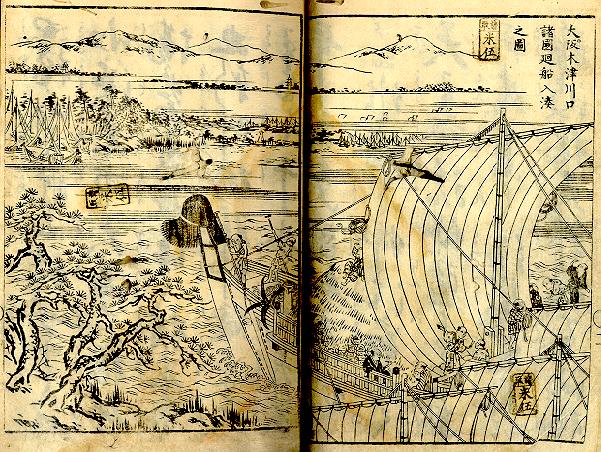 大阪木津川口
諸國廻船入湊
之圖
米伍
米伍